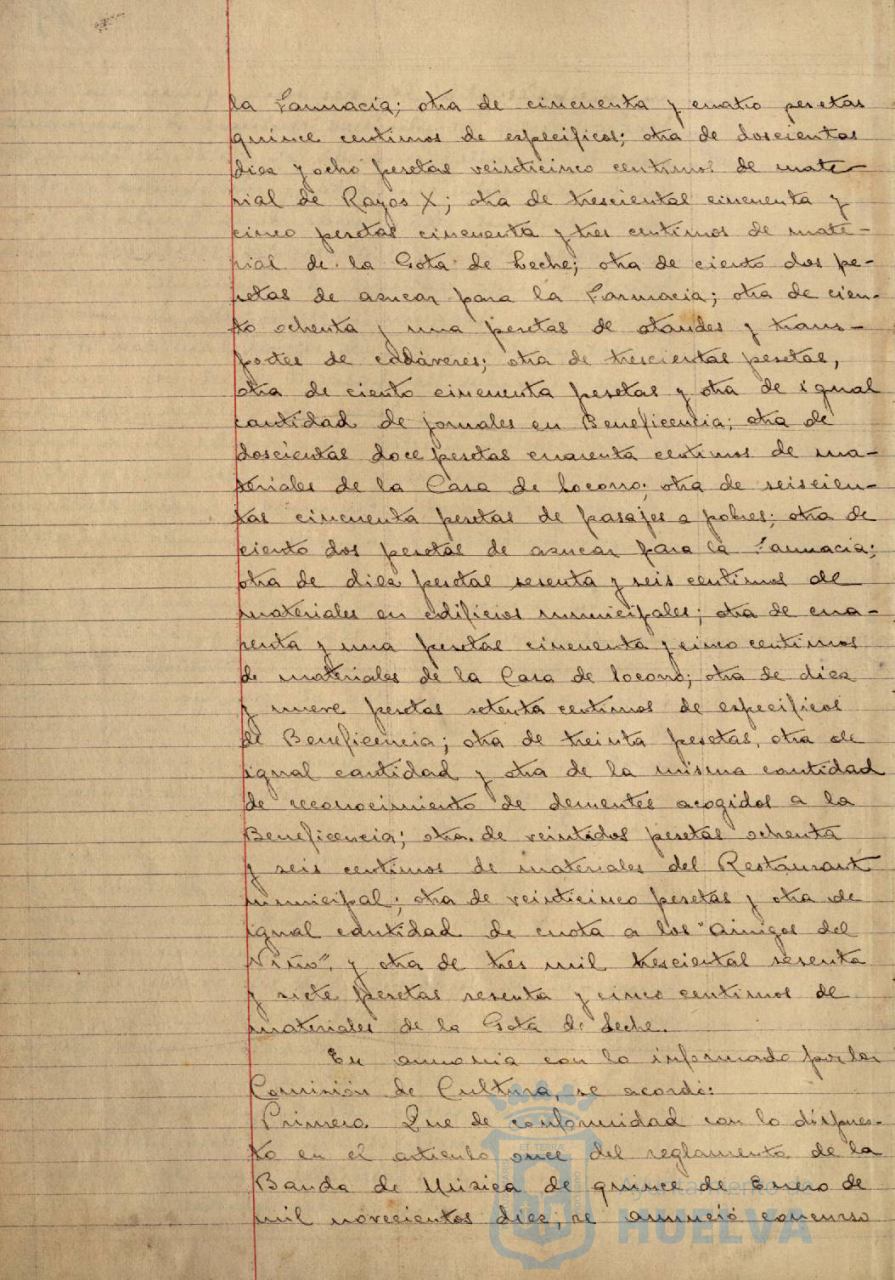 la Farmacia; otra de cincuenta y cuatro pesetas
quince centimos de especificos; otra de doscientas
diez y ocho pesetas veinticinco centimos de mate-
rial de Rayos X; otra de trescientas cincuenta y
cinco pesetas cincuenta y tres centimos de mate-
rial de la Gota de Leche; otra de ciento dos pe-
setas de azucar para la Farmacia; otra de cien-
to ochenta y una pesetas de ataudes y trans-
portes de cadáveres; otra de trescientas pesetas,
otra de ciento cincuenta pesetas y otra de igual
cantidad de jornales en Beneficencia; otra de
doscientas doce pesetas cuarenta centimos de ma-
teriales de la Casa de Socorro; otra de seiscien-
tas cincuenta pesetas de pasajes a pobres; otra de
ciento dos pesetas de azucar para la Farmacia;
otra de diez pesetas sesenta y seis centimos de
materiales en edificios municipales; otra de cua-
renta y una pesetas cincuenta y cinco centimos
de materiales de la Casa de Socorro; otra de diez
y nueve pesetas setenta centimos de especificos
de Beneficencia; otra de treinta pesetas, otra de
igual cantidad y otra de la misma cantidad
de reconocimiento de dementes acogidos a la
Beneficencia; otra de veintidos pesetas ochenta
y seis centimos de materiales del Restaurant
municipal; otra de veinticinco pesetas y otra de
igual cantidad de cuota a los "Amigos del
Niño", y otra de tres mil trescientas sesenta
y siete pesetas sesenta y cinco centimos de
materiales de la Gota de Leche.
En armonia con lo informado por la
Comisión de Cultura, se acordó:
Primero. Que de conformidad con lo dispues-
to en el articulo once del reglamento de la
Banda de Música de quince de Enero de
mil novecientos diez, se anunció concurso
HUELVA